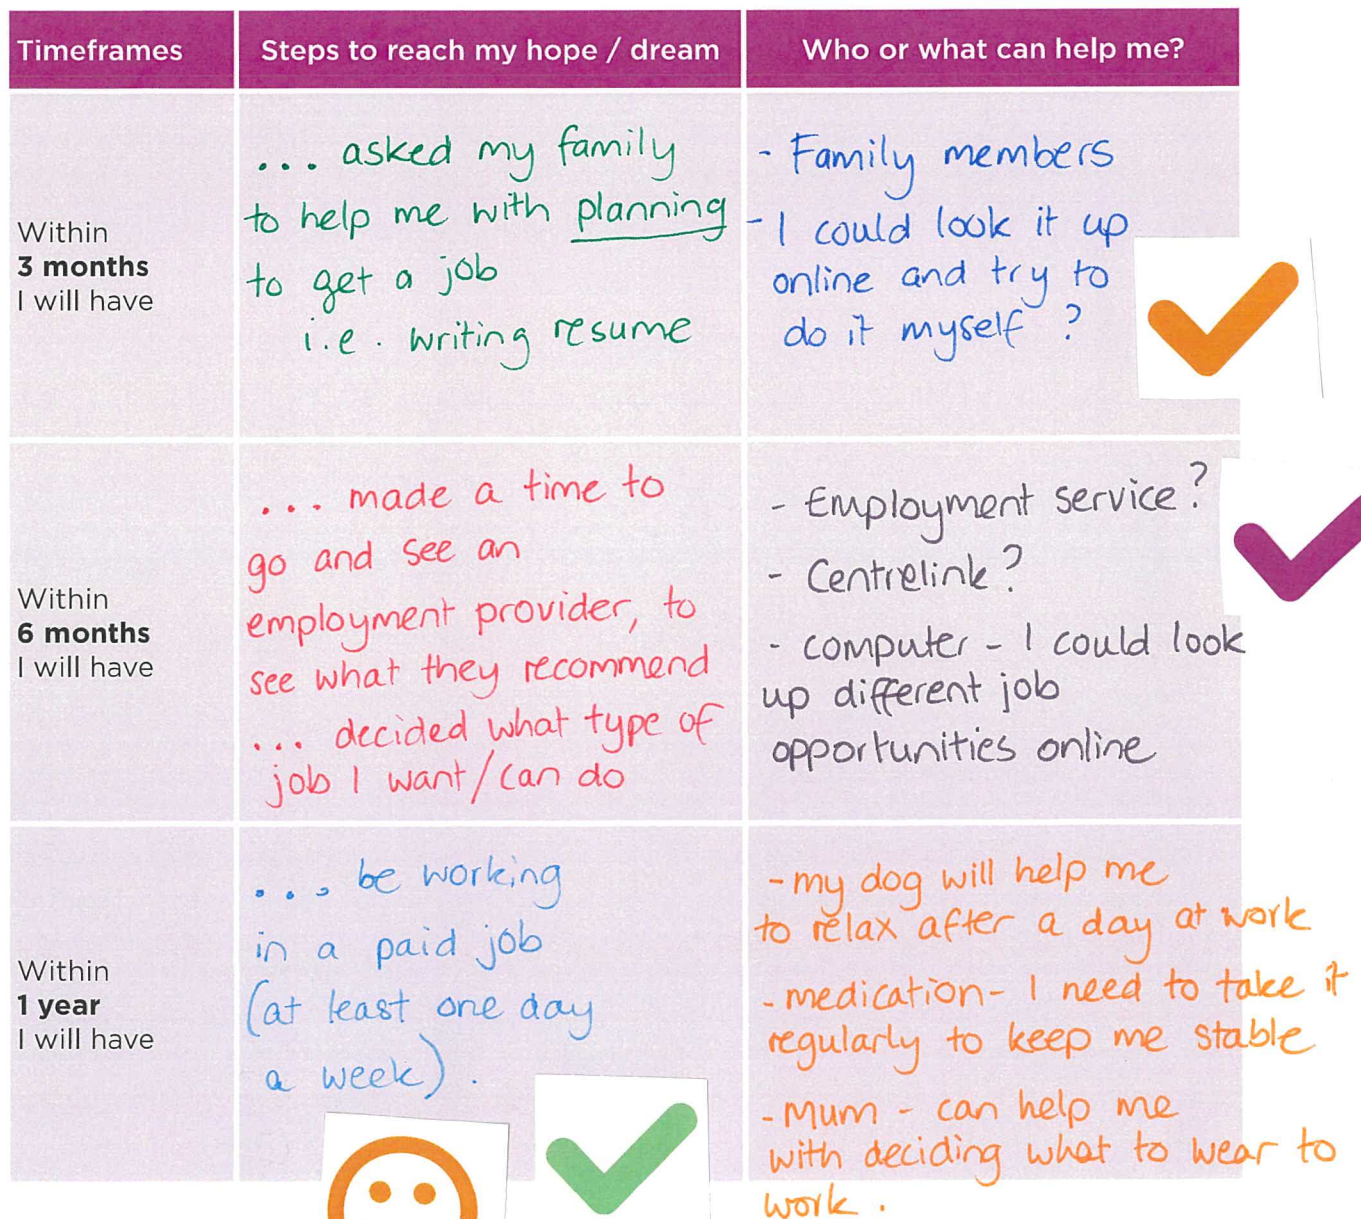 Timeframes
Steps to reach my hope / dream
Who or what can help me?
Within
3 months
I will have
... asked my family
to help me with planning
to get a job
i.e. writing resume
- Family members
- I could look it up
online and try to
do it myself ?
Within
6 months
I will have
... made a time to
go and see an
employment provider, to
see what they recommend
... decided what type of
job I want/can do
- Employment service?
- Centrelink?
- computer - I could look
up different job
opportunities online
Within
1 year
I will have
... be working
in a paid job
(at least one day
a week).
- my dog will help me
to relax after a day at work
- medication - I need to take it
regularly to keep me stable
- Mum - can help me
with deciding what to wear to
work.